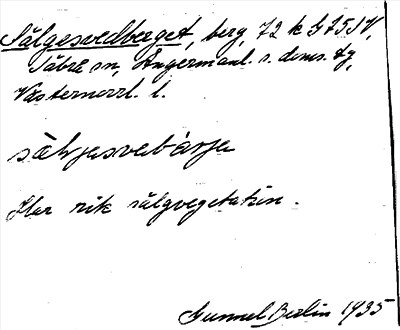 Sälgesvedberget, berg, 72 k G 7514,
Säbrå sn, Ångermanl. s. doms. tg,
Västernorrl. l.
säljesvebärje
Har rik sälgvegetation.
Gunnel Berlin 1935